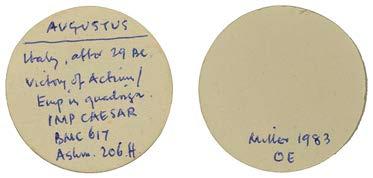 AUGUSTUS
Italy, after 29 BC.
Victory of Actium/
Emp in quadriga.
IMP CAESAR
BMC 617
Ashm. 206.H
Miller 1983
OE